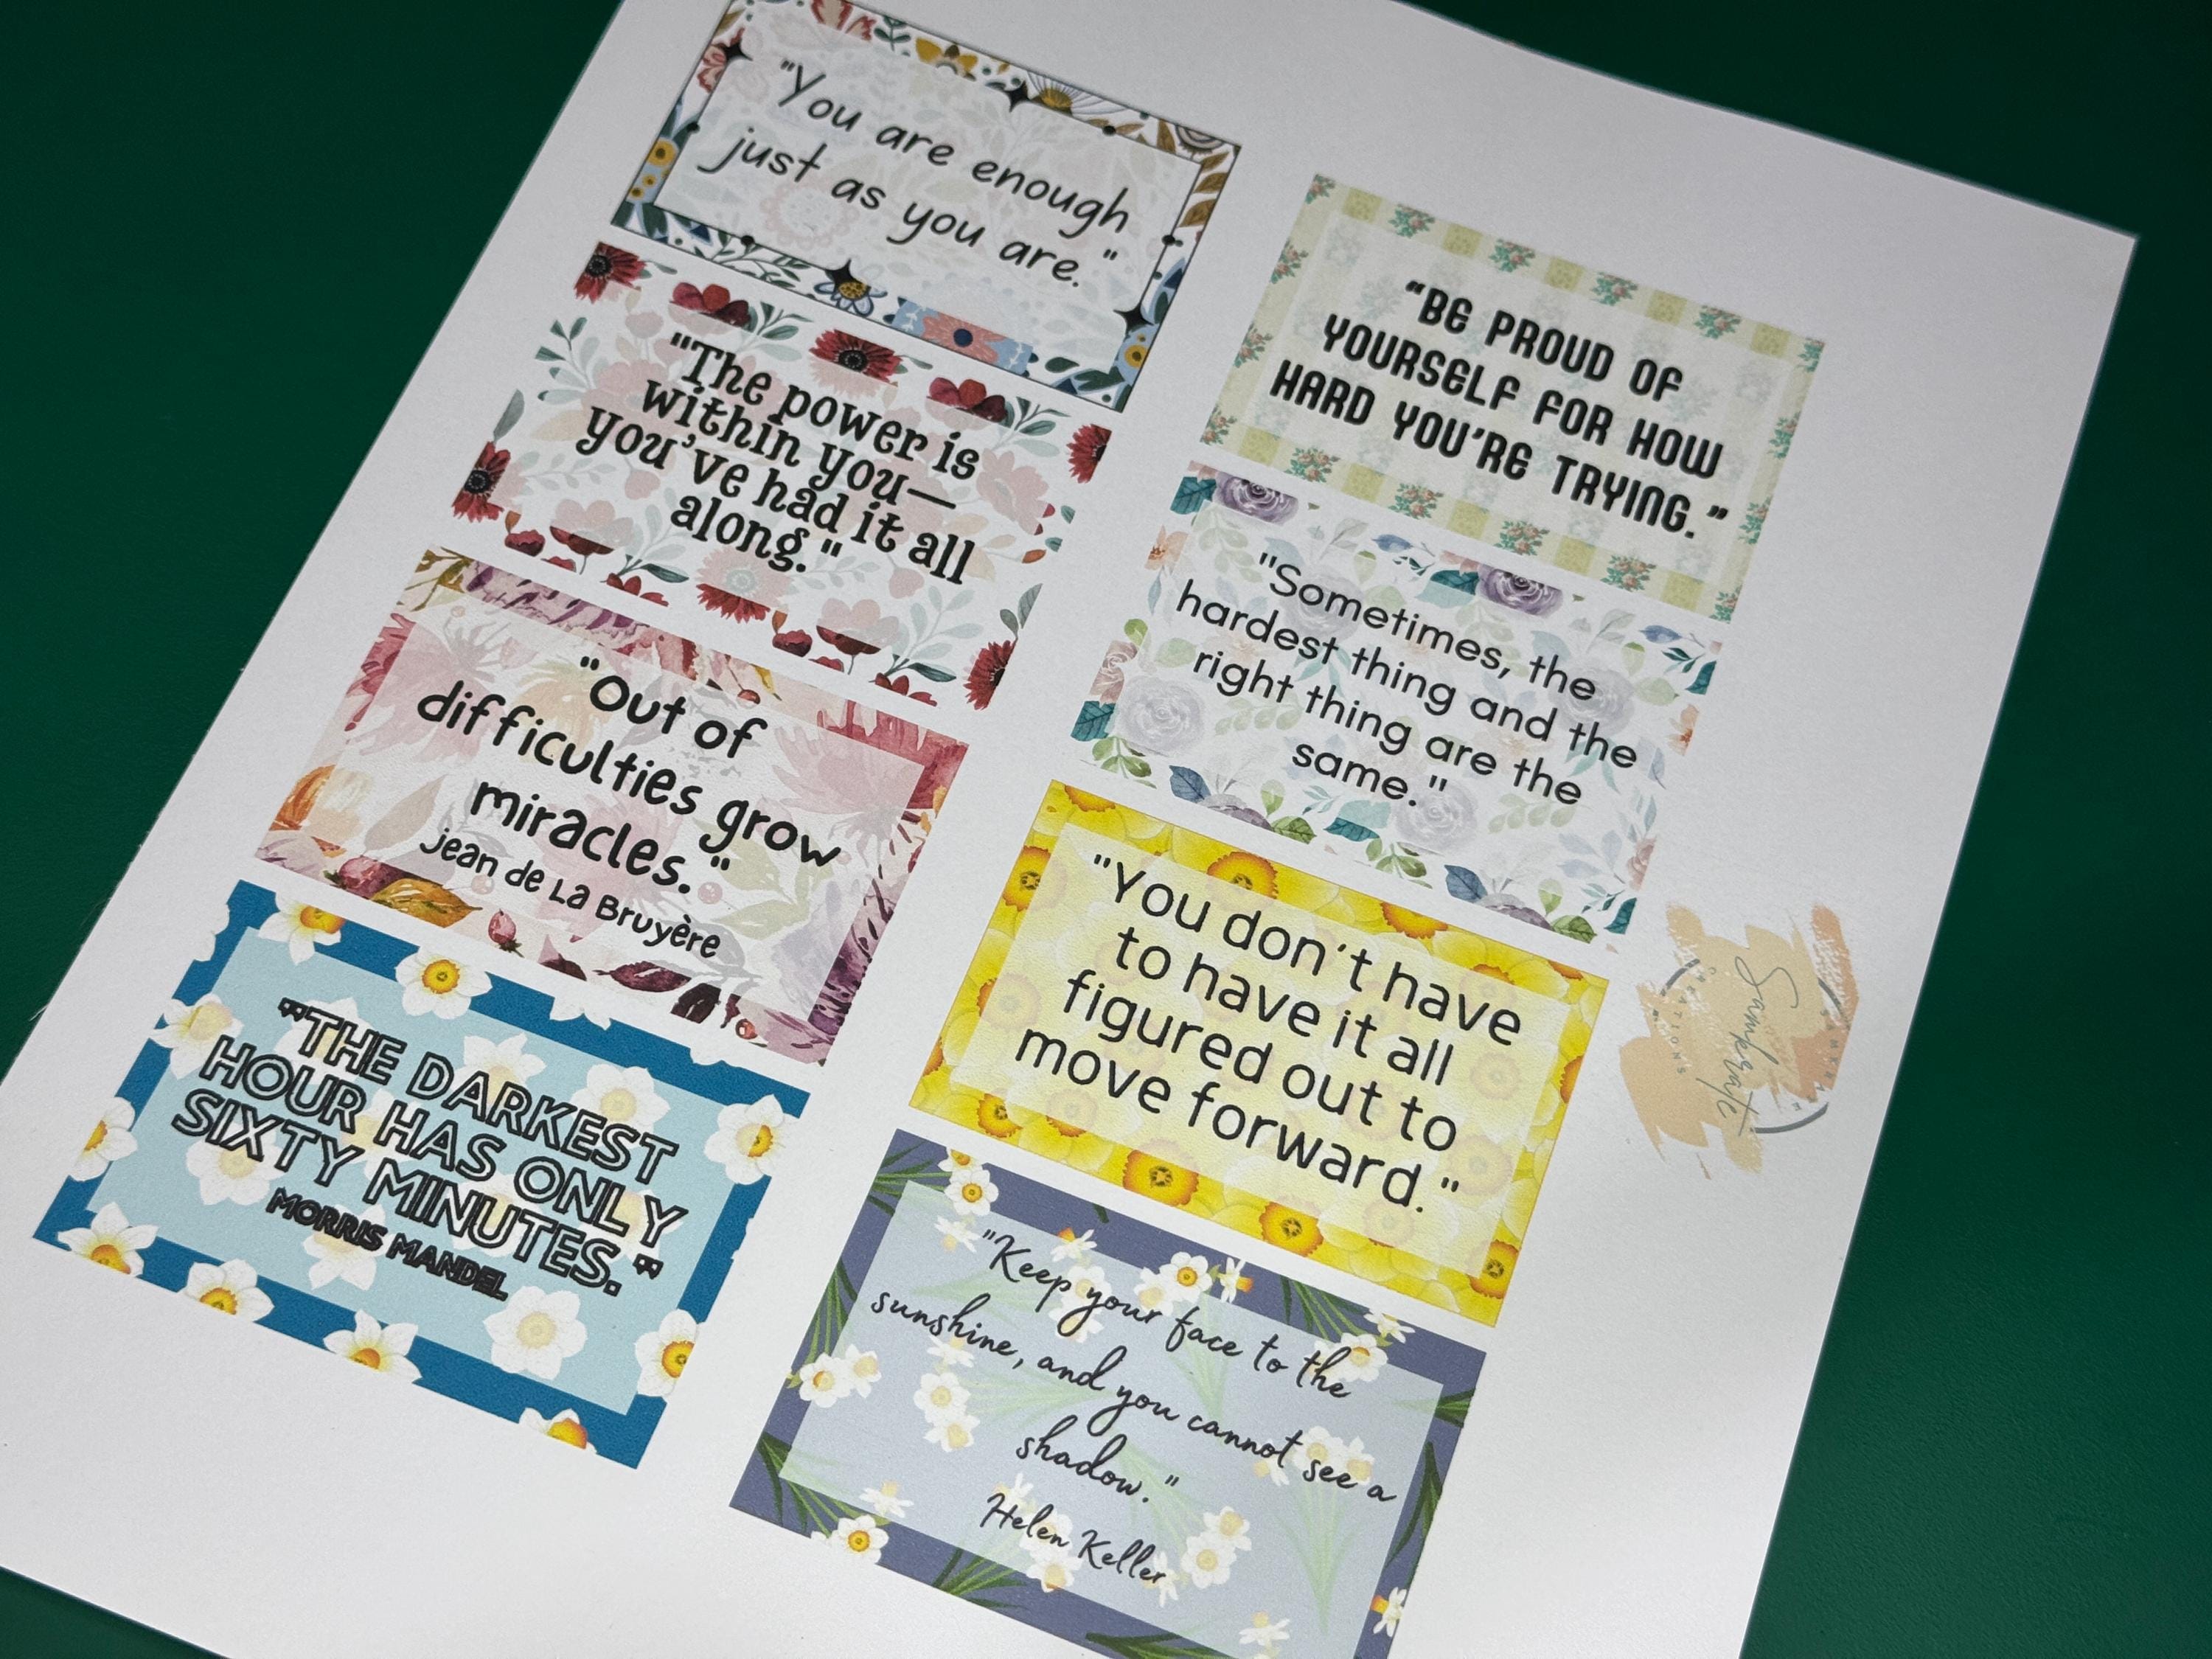 "You are enough
just as you are."
"The power is
within you—
you've had it all
along."
"Out of
difficulties grow
miracles."
Jean de La Bruyère
"THE DARKEST
HOUR HAS ONLY
SIXTY MINUTES."
MORRIS MANDEL
"BE PROUD OF
YOURSELF FOR HOW
HARD YOU'RE TRYING."
"Sometimes, the
hardest thing and the
right thing are the
same."
"You don't have
to have it all
figured out to
move forward."
"Keep your face to the
sunshine, and you cannot see a
shadow."
Helen Keller
CREATIONS